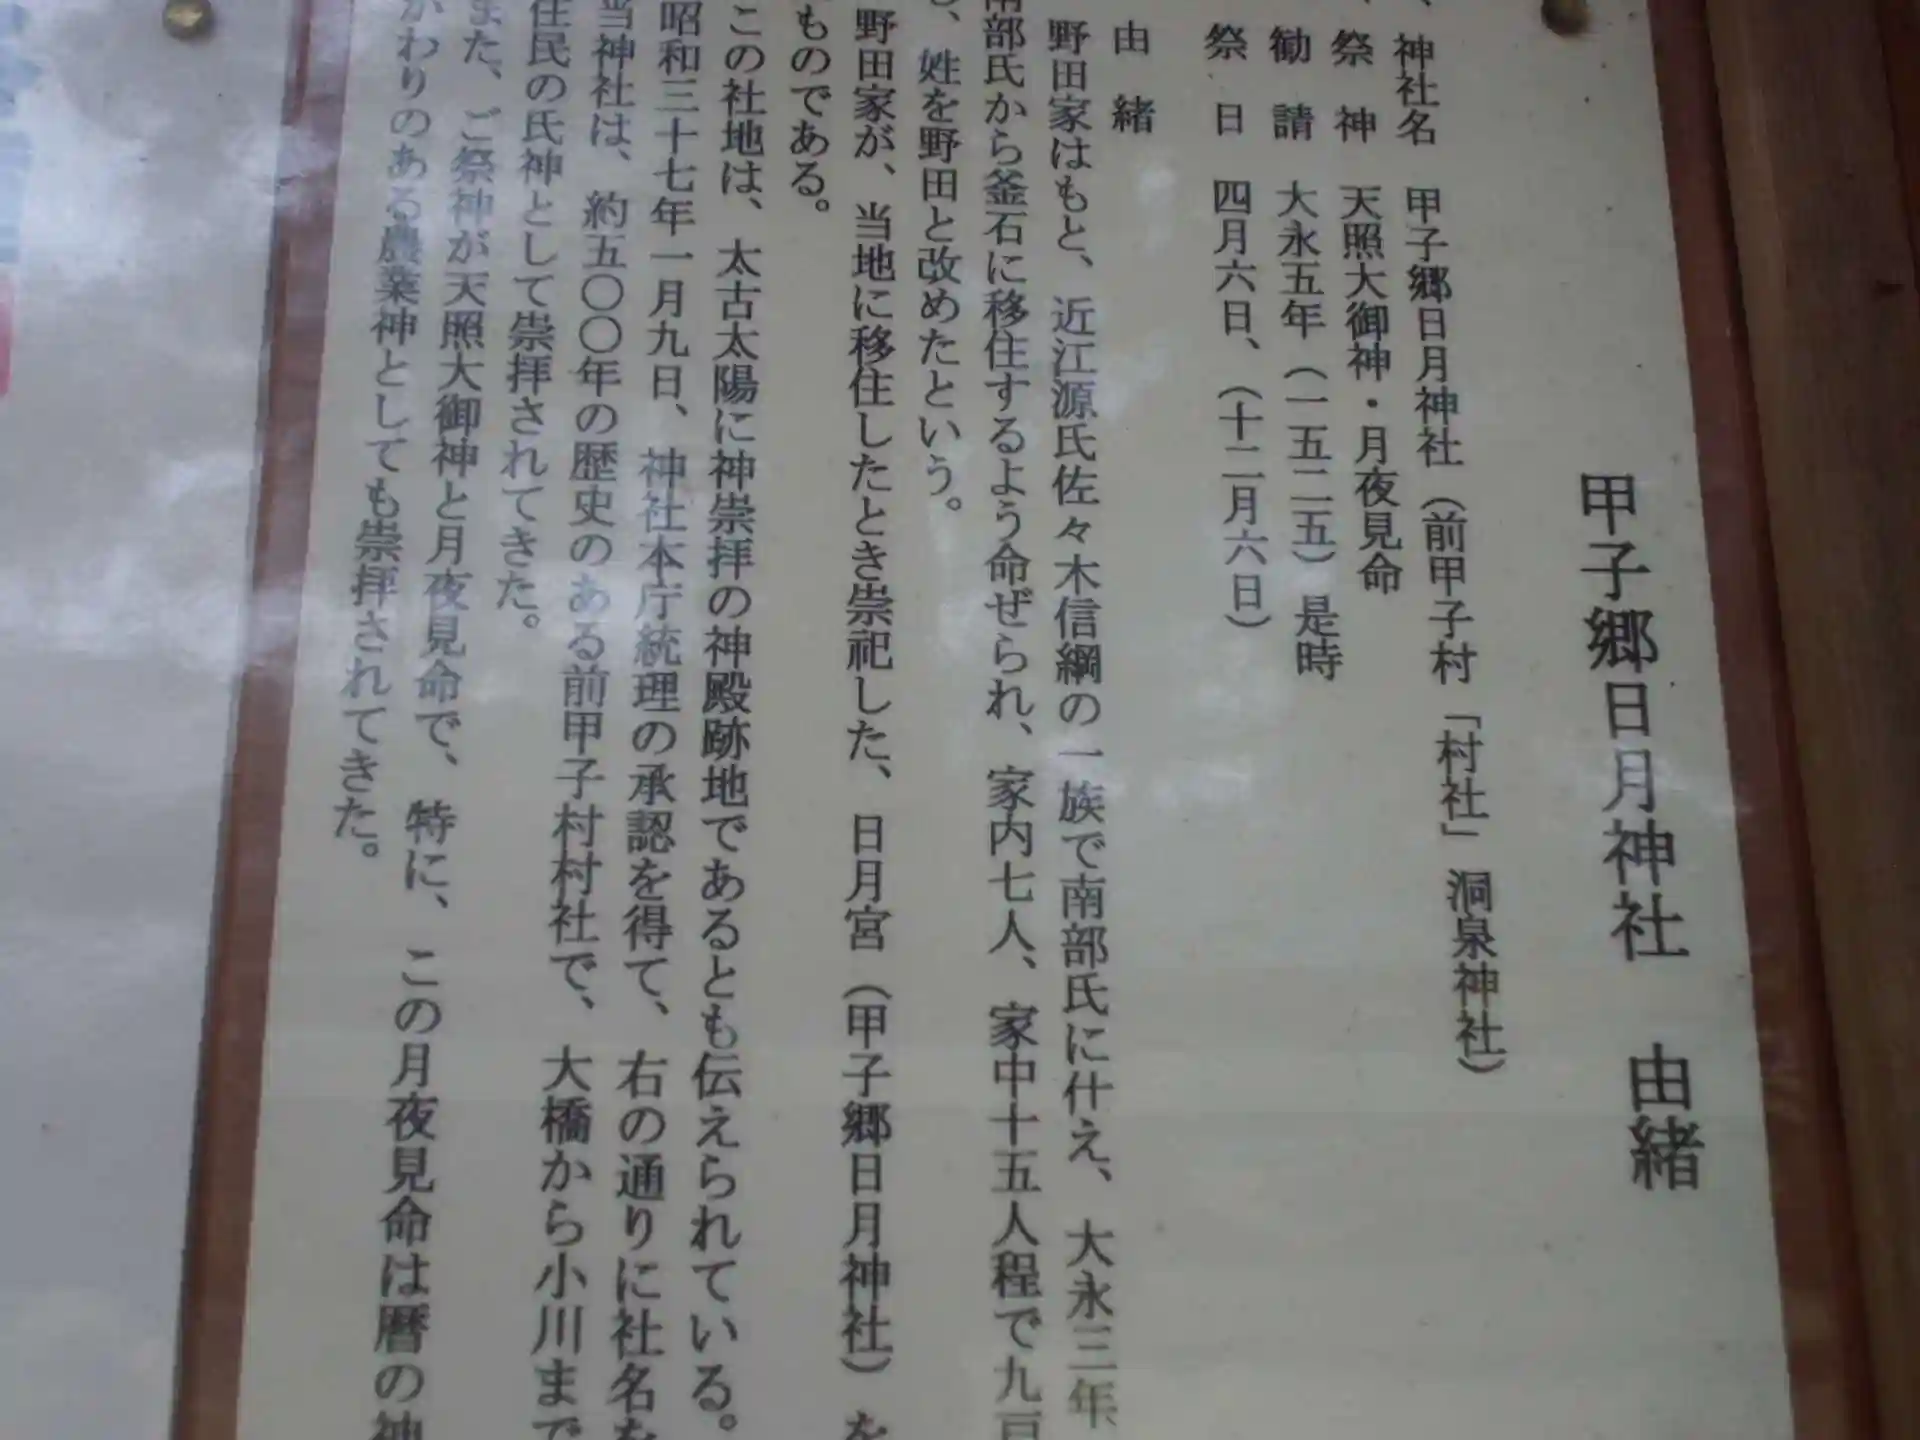 甲子郷日月神社　由緒
、神社名　甲子郷日月神社（前甲子村「村社」洞泉神社）
、祭　神　天照大御神・月夜見命
勧　請　大永五年（一五二五）是時
祭　日　四月六日、（十二月六日）
由　緒
野田家はもと、近江源氏佐々木信綱の一族で南部氏に仕え、大永三年
南部氏から釜石に移住するよう命ぜられ、家内七人、家中十五人程で九戸
、姓を野田と改めたという。
野田家が、当地に移住したとき崇祀した、日月宮（甲子郷日月神社）を
ものである。
この社地は、太古太陽に神崇拝の神殿跡地であるとも伝えられている。
昭和三十七年一月九日、神社本庁統理の承認を得て、右の通りに社名を
当神社は、約五〇〇年の歴史のある前甲子村村社で、大橋から小川まで
住民の氏神として崇拝されてきた。
また、ご祭神が天照大御神と月夜見命で、特に、この月夜見命は暦の神
かわりのある農業神としても崇拝されてきた。